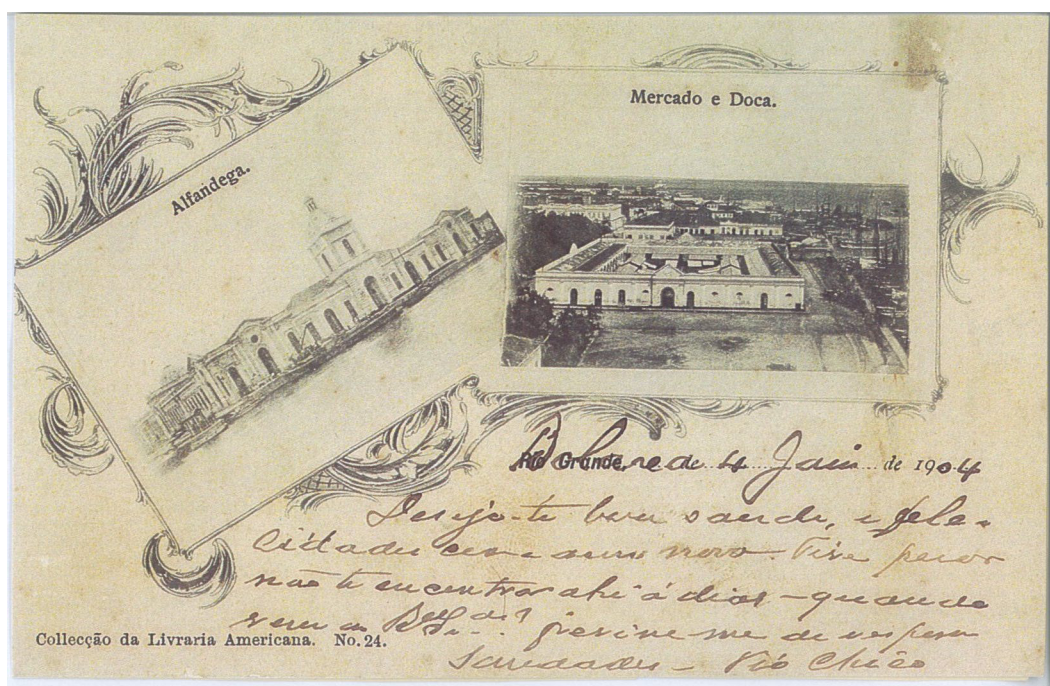 Alfandega.
Mercado e Doca.
Rio Grande, de 4 Jan de 1904
Desejo-te boa saude, e fele-
cidades anno novo. Tive pesar
não te encontrar ahi á dias - quando
previne-me de vespera
Saudades - Tio Chico
Collecção da Livraria Americana. No. 24.